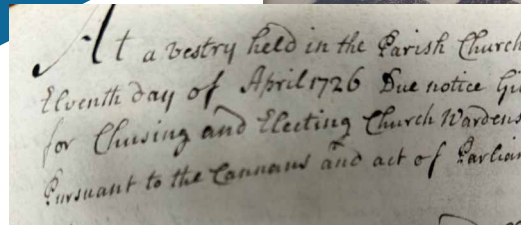 At a vestry held in the Parish Church
Elventh day of April 1726 Due notice Gi
for Chusing and Electing Church Wardens
Pursuant to the Cannans and act of Parliam